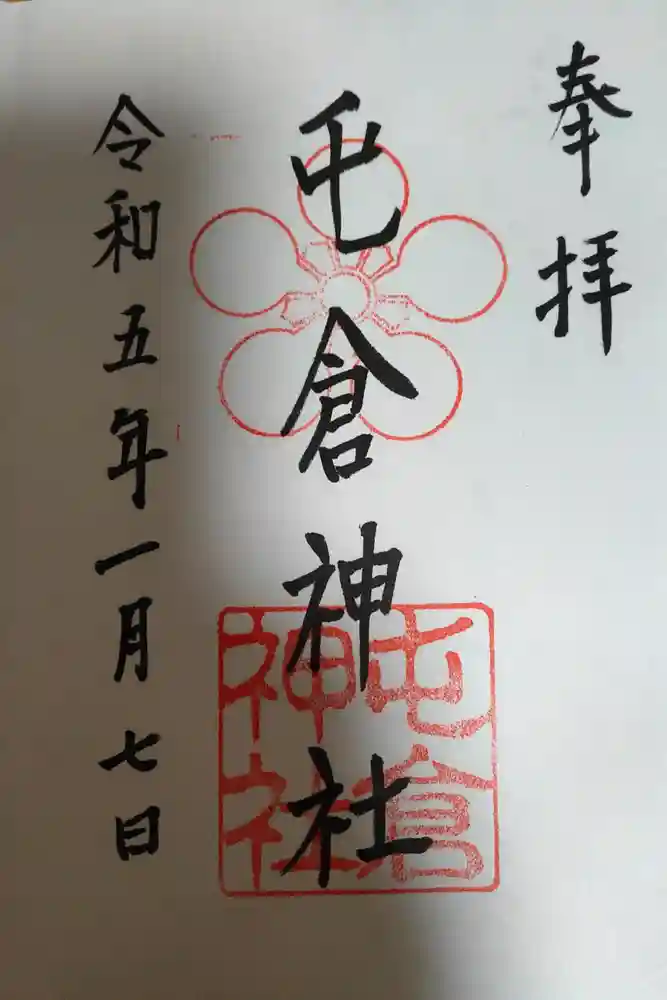 奉拝
屯倉神社
屯倉
神社
令和五年一月七日